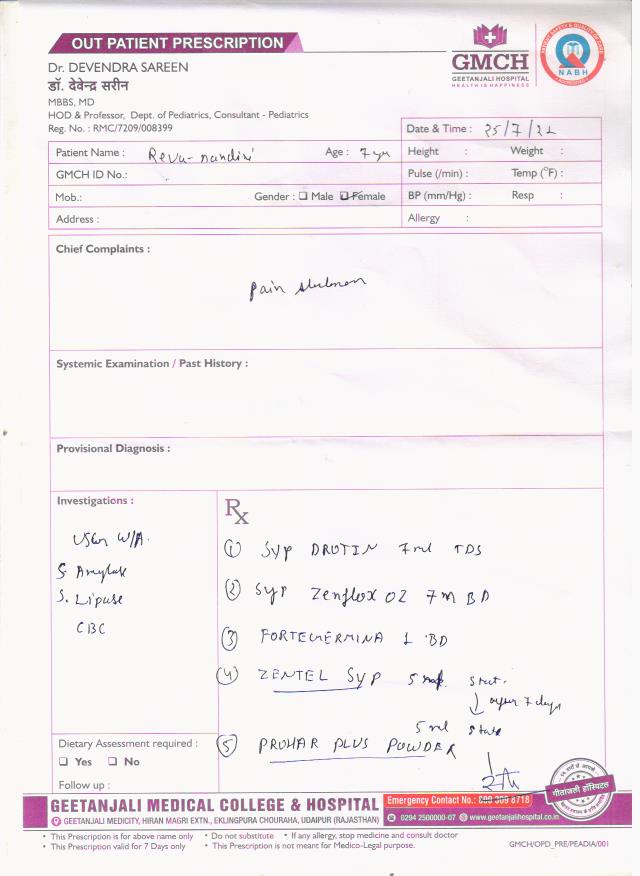 OUT PATIENT PRESCRIPTION
Dr. DEVENDRA SAREEN
डॉ. देवेन्द्र सरीन
MBBS, MD
HOD & Professor, Dept. of Pediatrics, Consultant - Pediatrics
Reg. No. : RMC/7209/008399
GMCH
GEETANJALI HOSPITAL
HEALTH IS HAPPINESS
NABH
Date & Time : 25/7/22
Patient Name : Reva-nandini Age : 7 yr Height : Weight :
GMCH ID No.: Pulse (/min) : Temp (°F) :
Mob.: Gender : Male Female BP (mm/Hg) : Resp :
Address : Allergy :
Chief Complaints :
Pain abdomen
Systemic Examination / Past History :
Provisional Diagnosis :
Investigations :
USG W/A.
S. Amylase
S. Lipase
CBC
Rx
① Syp DROTIN 7ml TDS
② Syp Zenflox OZ 7ml BD
③ 1 BD
④ ZENTEL Syp 5 ml stat.
after 7 days
5 ml stat
⑤ PROHAR PLUS POWDER
Dietary Assessment required :
Yes No
Follow up :
गीतांजली हॉस्पिटल
GEETANJALI MEDICAL COLLEGE & HOSPITAL
GEETANJALI MEDICITY, HIRAN MAGRI EXTN., EKLINGPURA CHOURAHA, UDAIPUR (RAJASTHAN)
Emergency Contact No.: 8718
0294 2500000-07 www.geetanjalihospital.co.in
• This Prescription is for above name only • Do not substitute • If any allergy, stop medicine and consult doctor
• This Prescription valid for 7 Days only • This Prescription is not meant for Medico-Legal purpose.
GMCH/OPD_PRE/PEADIA/001